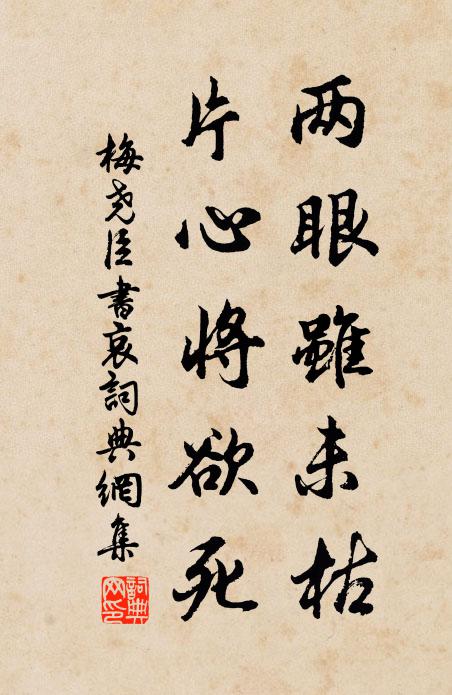 两眼雖未枯
片心將欲死
梅尧臣書哀詞典網集
詞典网印